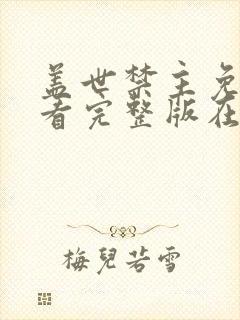 盖世禁主免
看完整版在
梅兒若雪